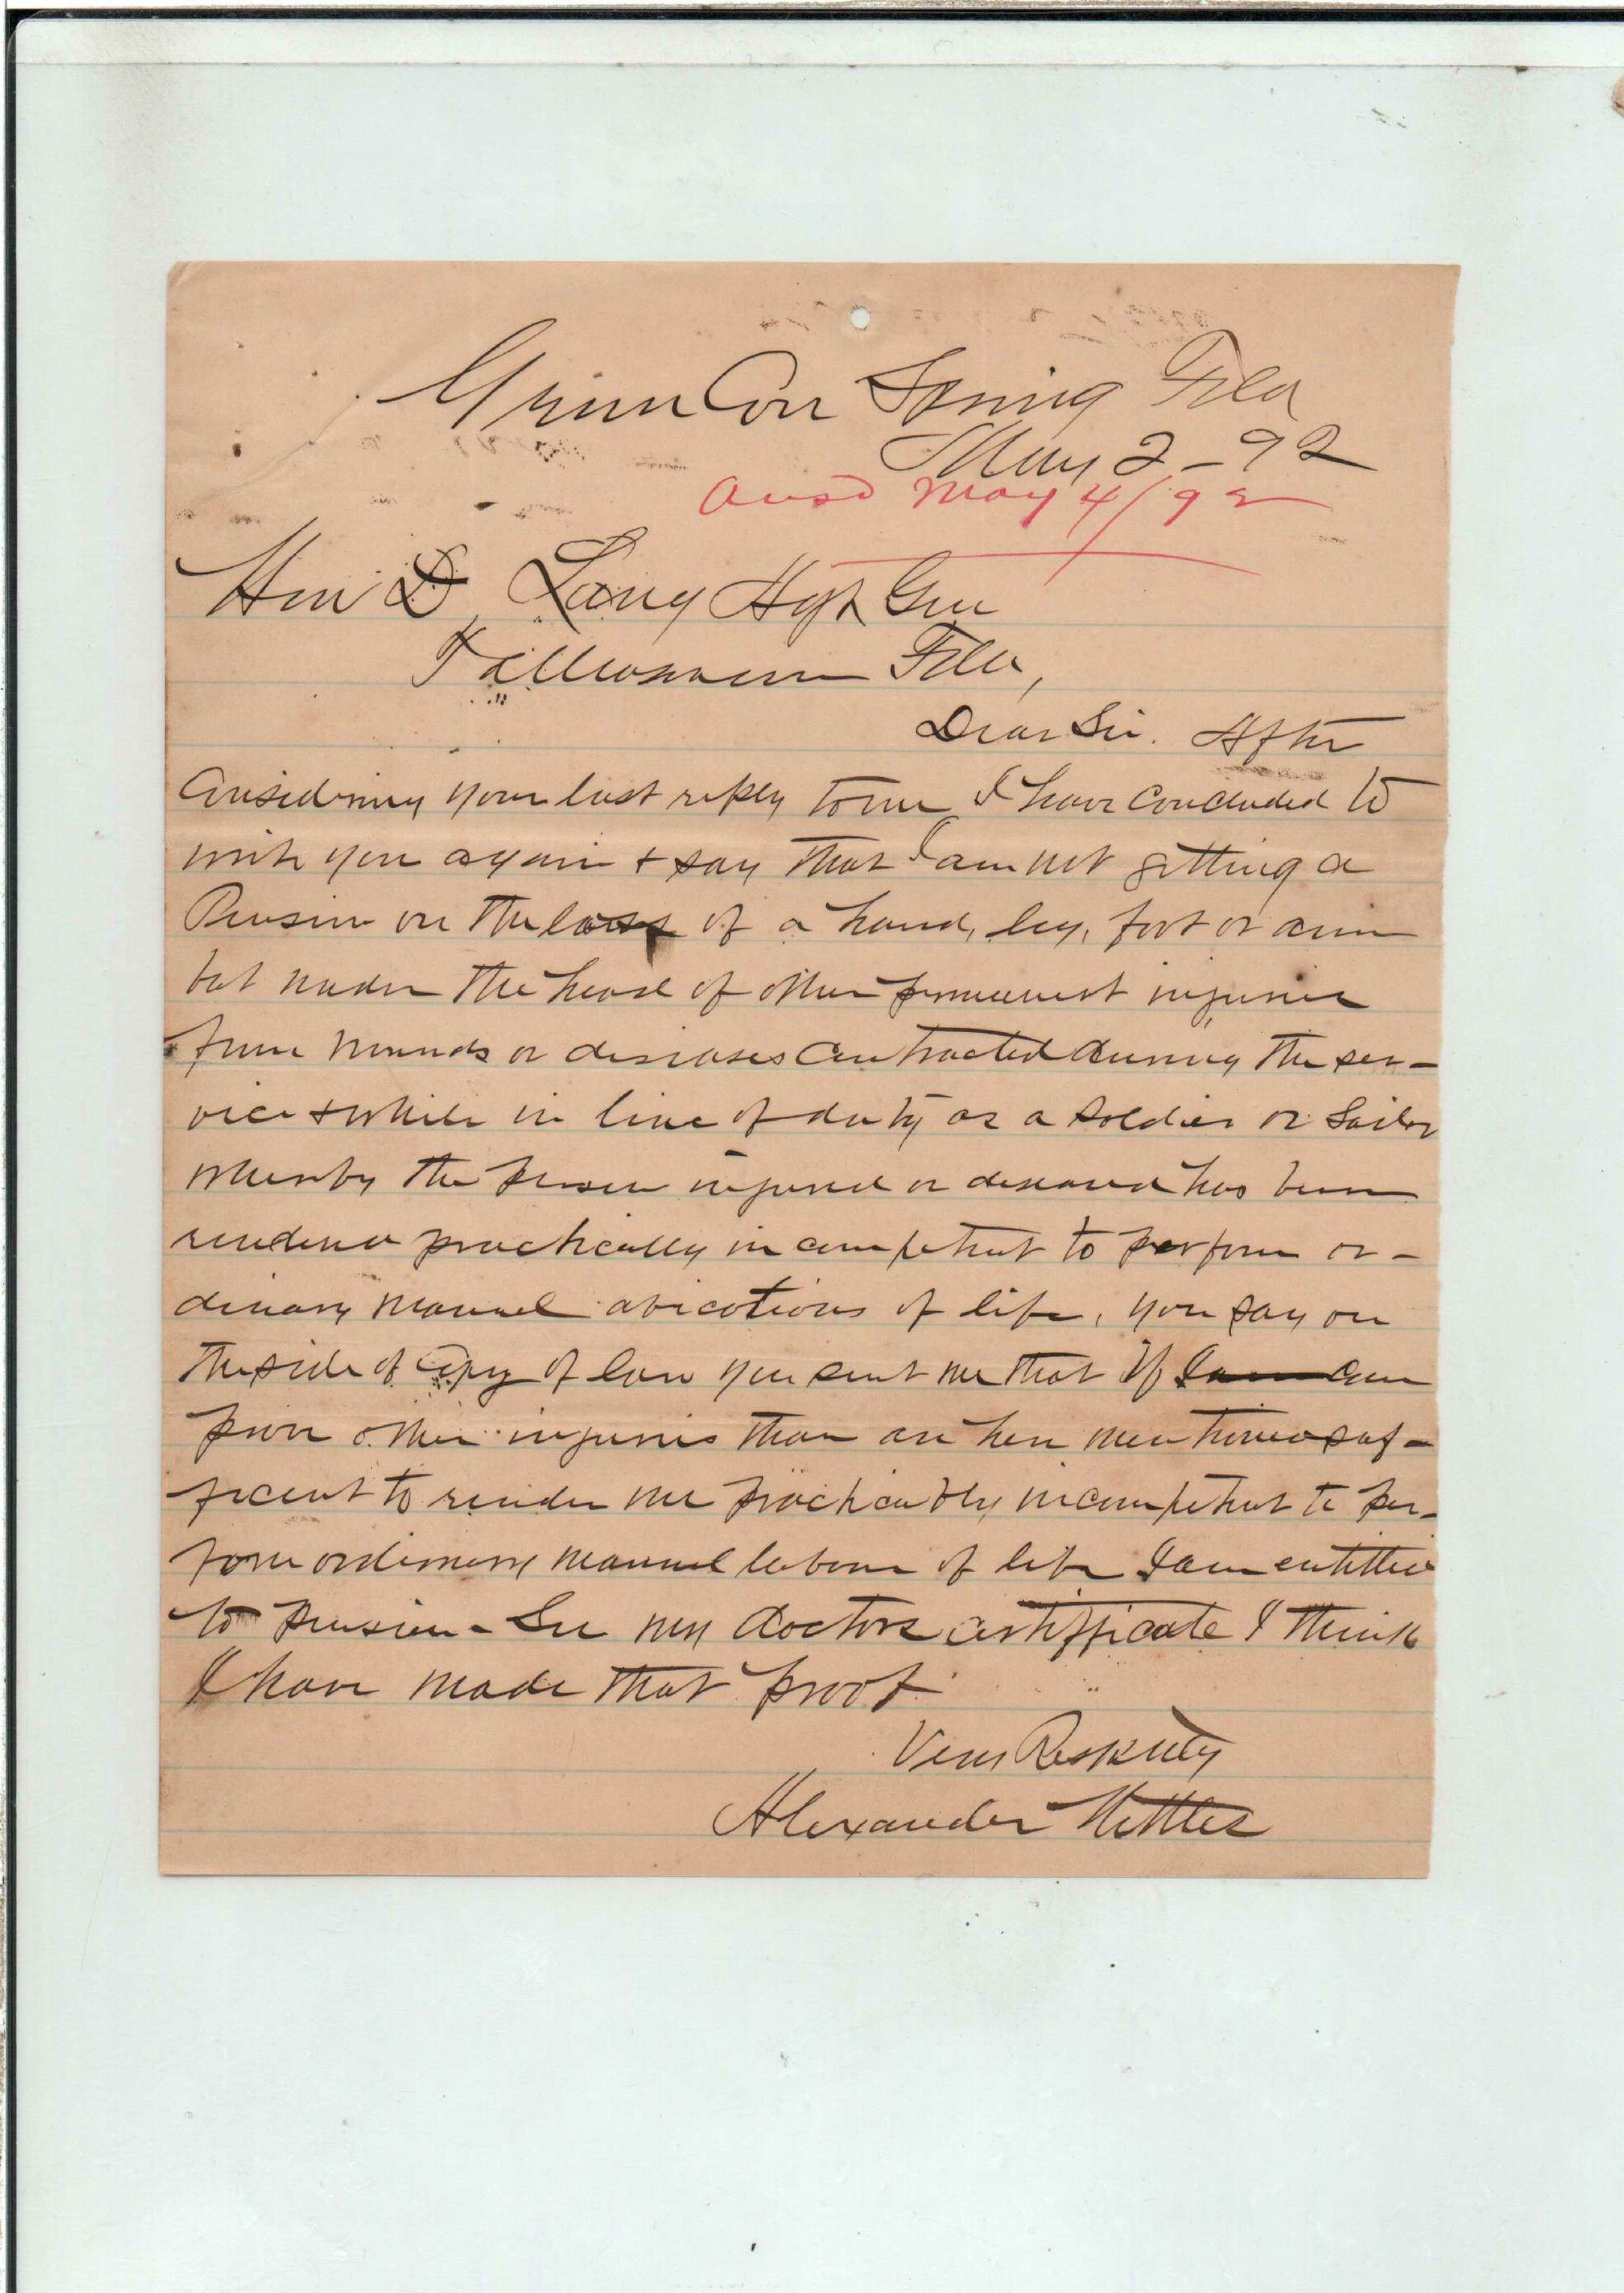 Green Cove Spring Fla
May 2 - 92
Ansd May 4/92
Hon D Lang Adjt Gen
Tallahassee Fla,
Dear Sir. After
Considering your last reply to me I have concluded to
write you again + say that I am not getting a
Pension on the loss of a hand, leg, foot or arm
but under the head of other permanent injuries
from wounds or diseases contracted during the ser-
vice & while in line of duty as a soldier or sailor
whereby the person injured or diseased has been
rendered practically incompetent to perform or-
dinary manuel avications of life, you say on
the side of Copy of law you sent me that if I can
prove other injuries than are here mentioned suf-
ficent to render me practicably incompetent to per-
form ordinary manuel labour of life I am entitled
to pension - See my doctors certifficate I think
I have made that proof.
Very Respktly
Alexander Nettles